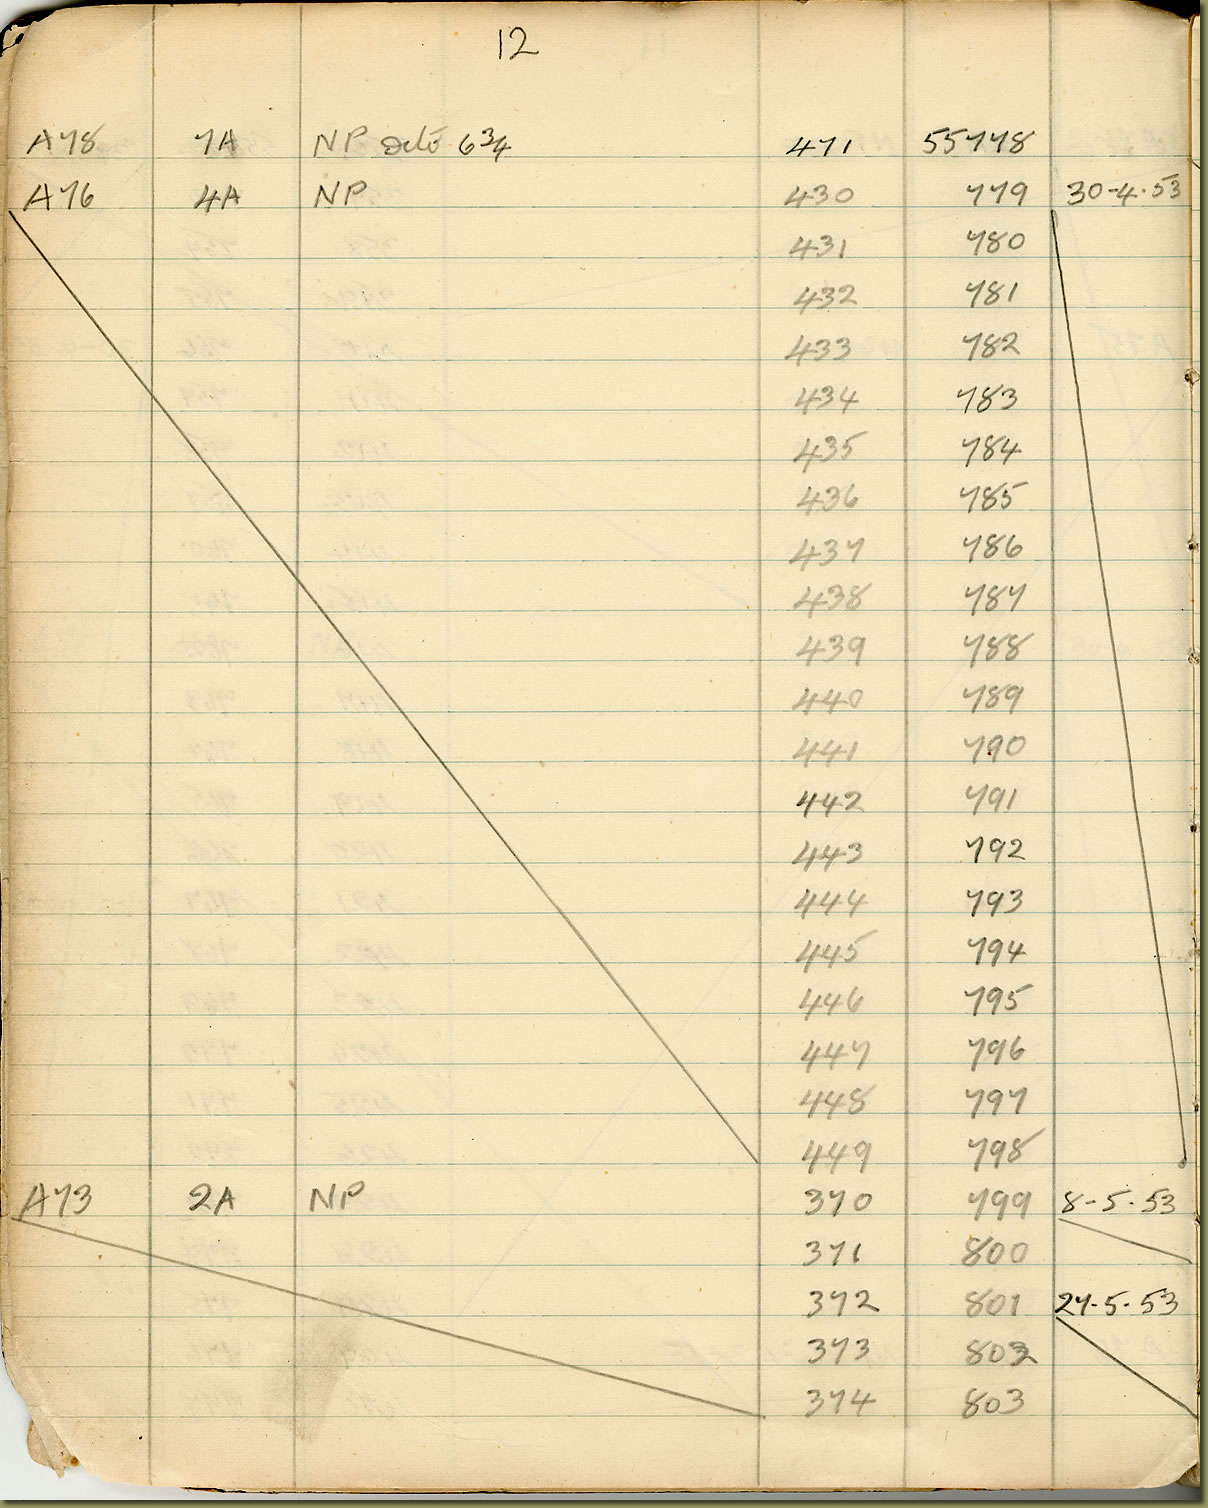 12
A78 7A NP 6 3/4 471 55778
A76 4A NP 430 779 30-4-53
431 780
432 781
433 782
434 783
435 784
436 785
437 786
438 787
439 788
440 789
441 790
442 791
443 792
444 793
445 794
446 795
447 796
448 797
449 798
A73 2A NP 370 799 8-5-53
371 800
372 801 27-5-53
373 802
374 803